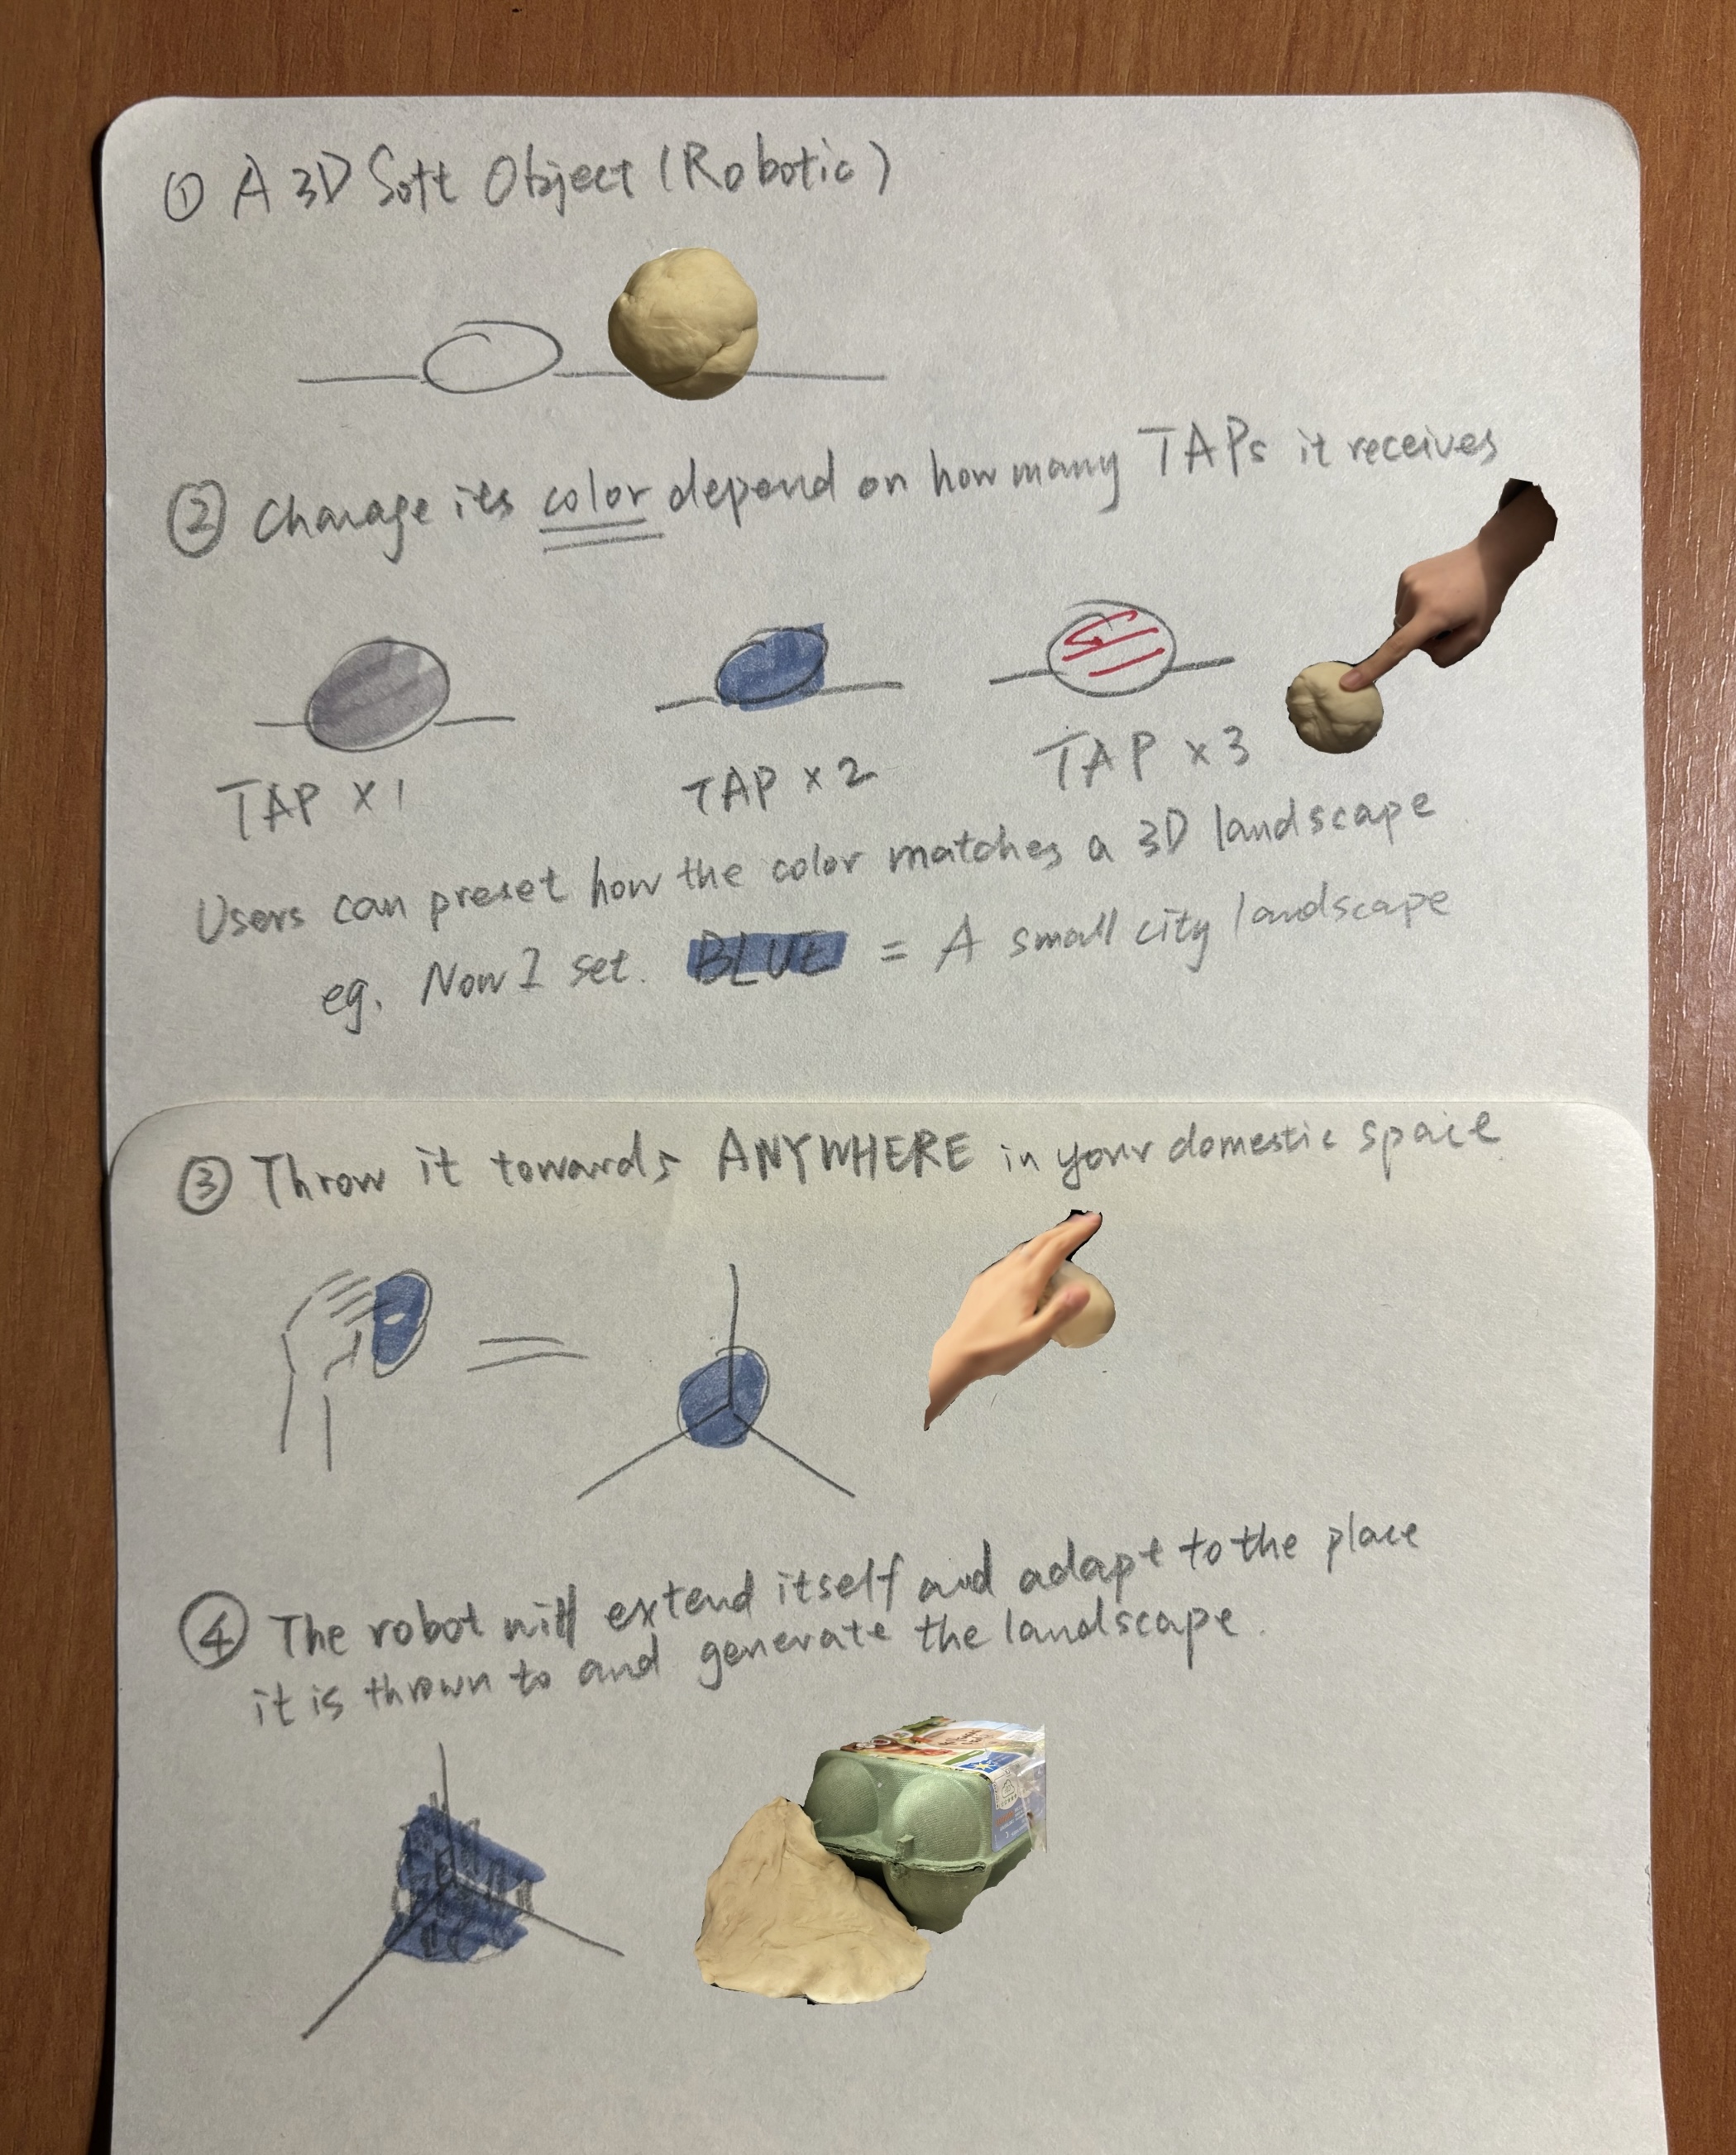 ① A 3D Soft Object (Robotic)
② Change its color depend on how many TAPs it receives
TAP x1
TAP x2
TAP x3
Users can preset how the color matches a 3D landscape
eg. Now I set. BLUE = A small city landscape
③ Throw it towards ANYWHERE in your domestic space
④ The robot will extend itself and adapt to the place
it is thrown to and generate the landscape.